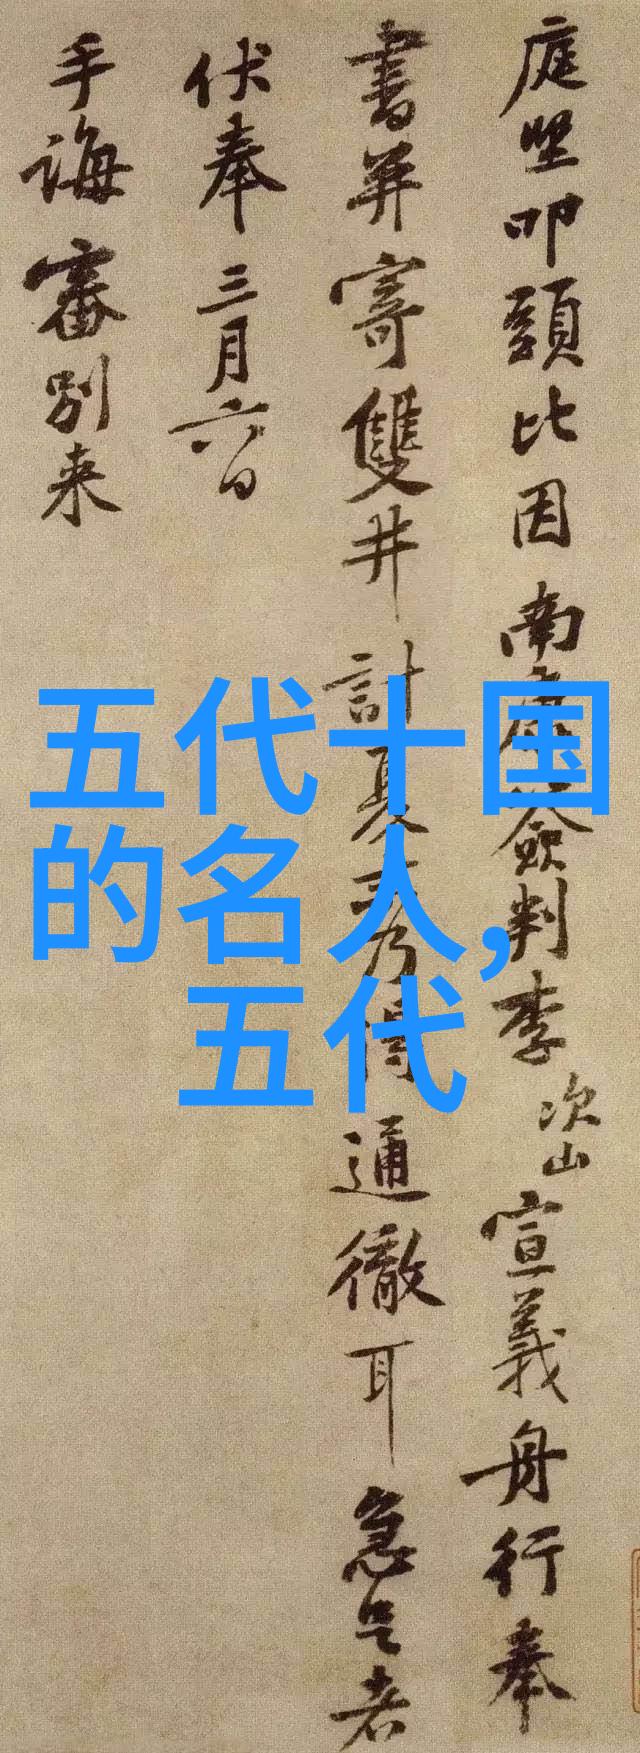 庭堅叩頭比因南康簽判李次山宣義舟行奉
書并寄雙井計夏三乃得通徹耳急足者
伏奉三月六日
手誨審別来
五代十国
的名人，
五代